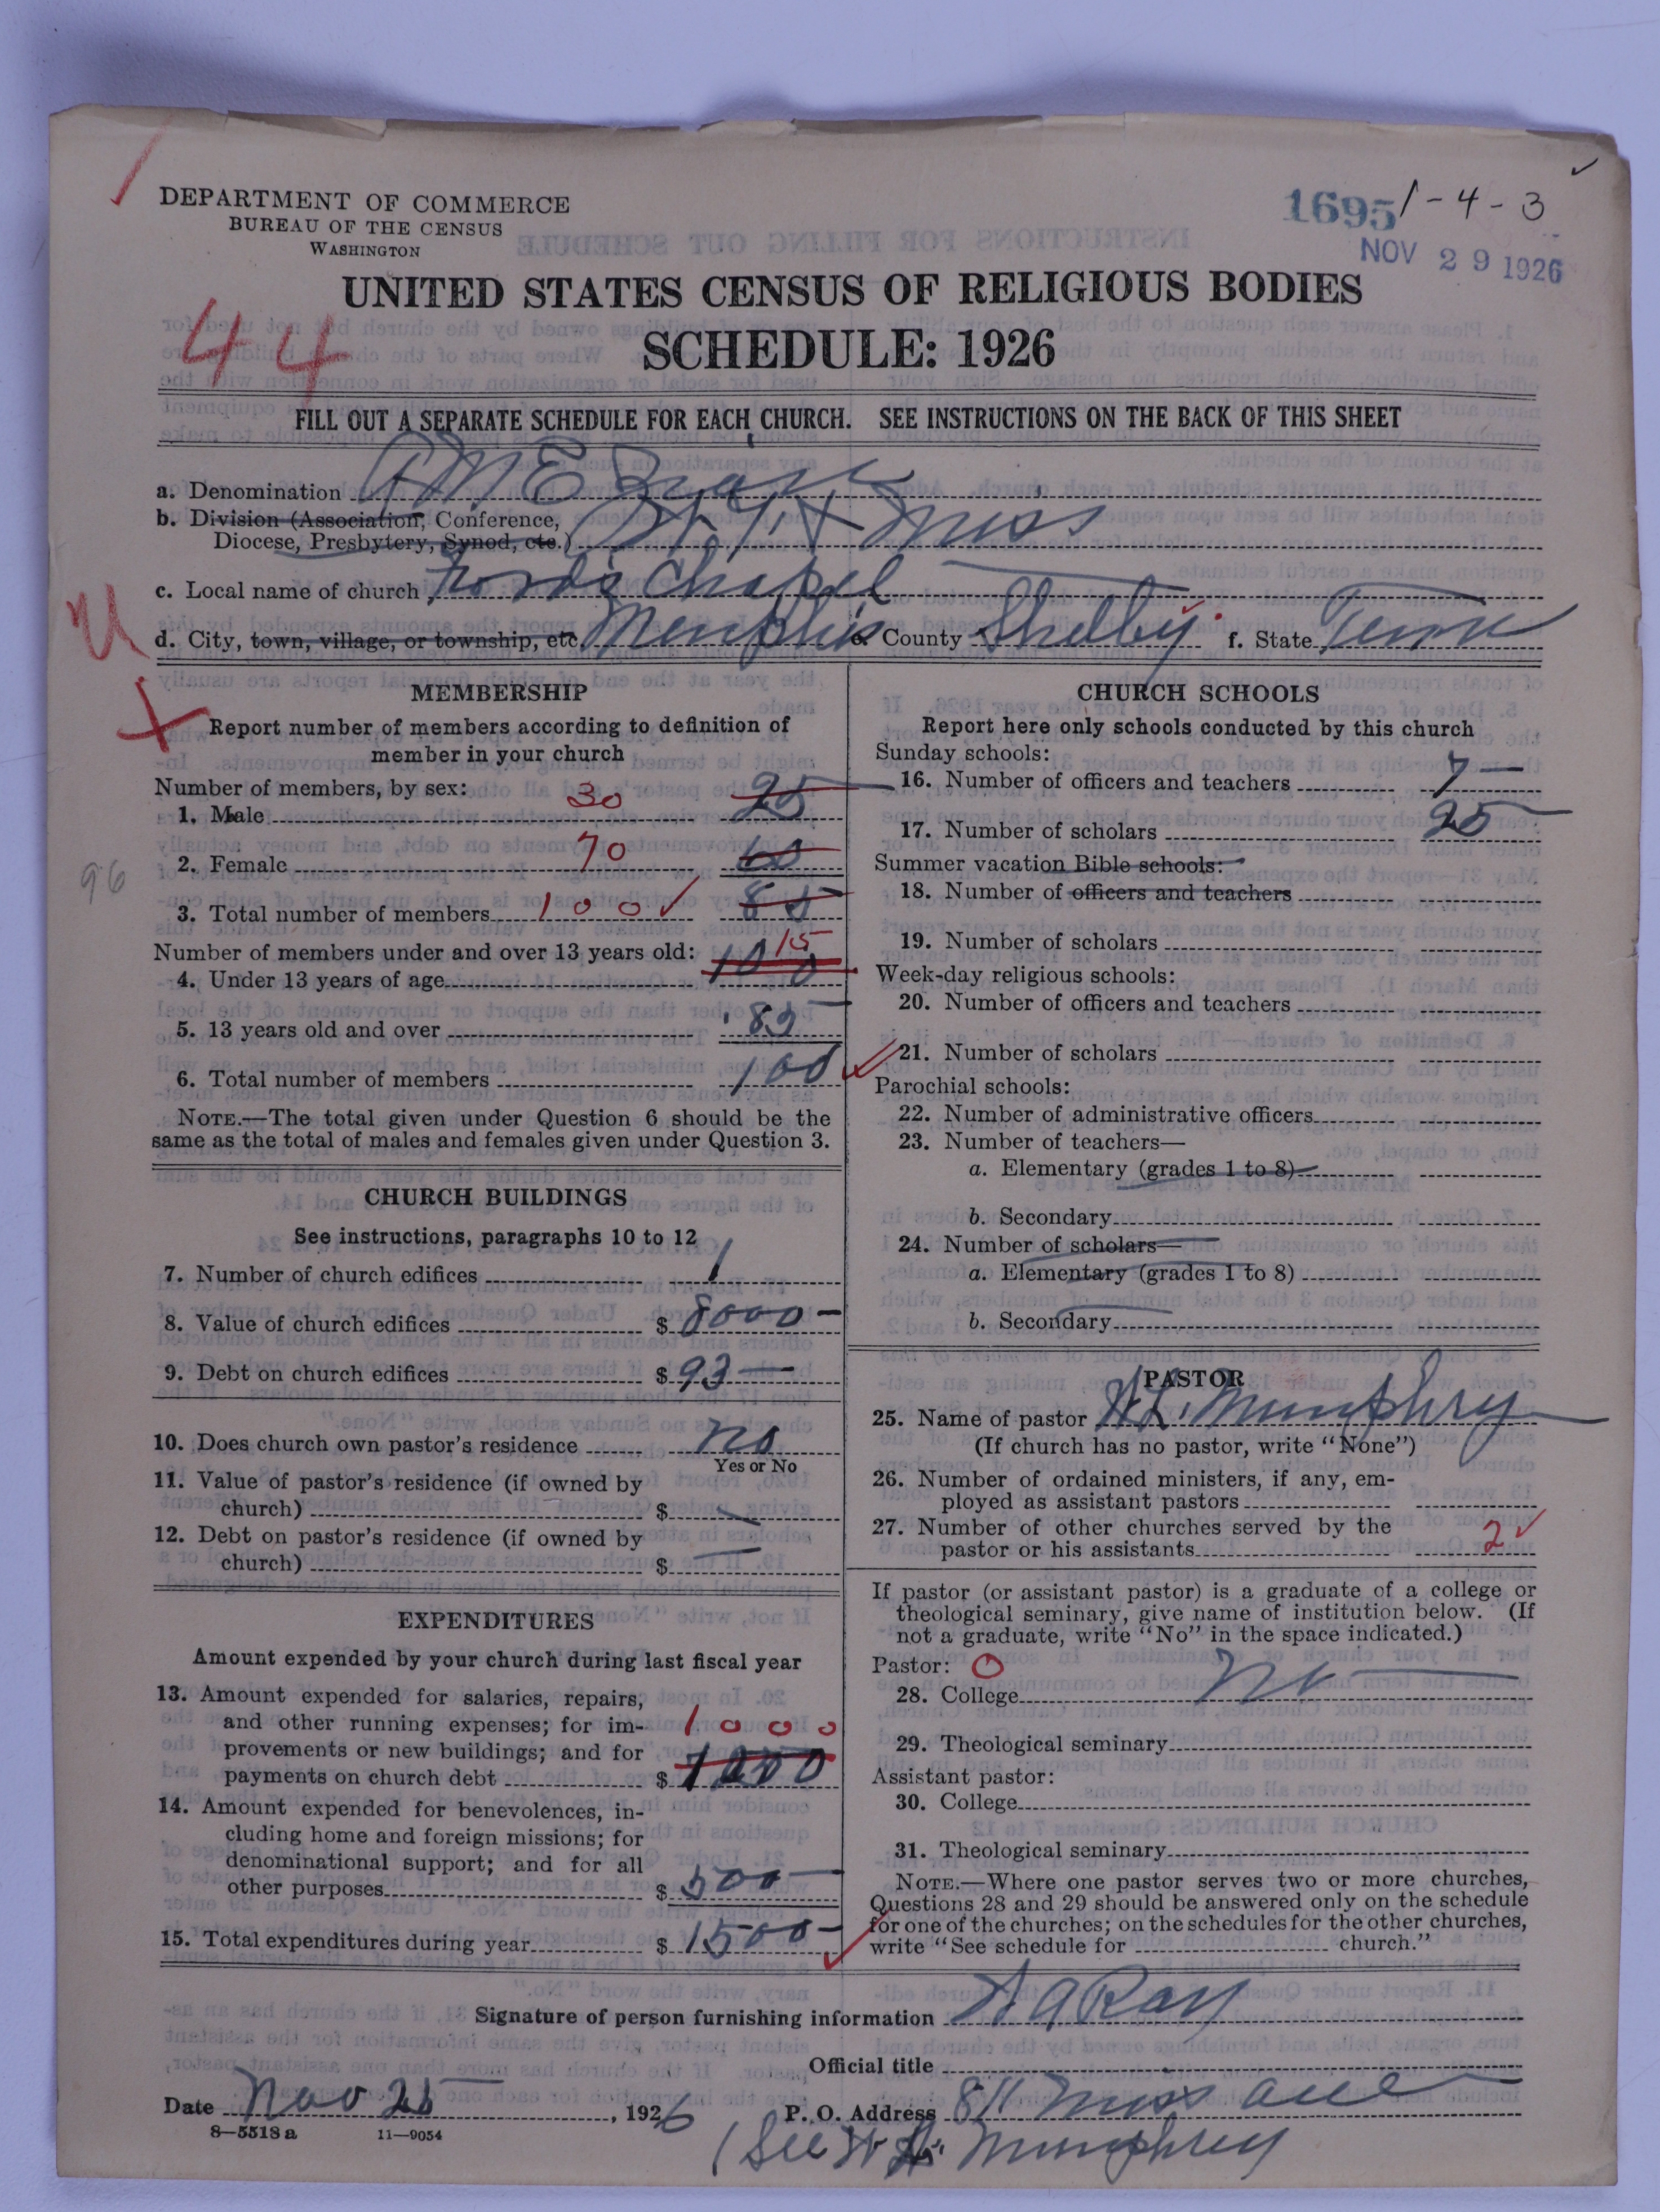 DEPARTMENT OF COMMERCE
BUREAU OF THE CENSUS
WASHINGTON
1695 1-4-3
NOV 29 1926
UNITED STATES CENSUS OF RELIGIOUS BODIES
SCHEDULE: 1926
44
FILL OUT A SEPARATE SCHEDULE FOR EACH CHURCH. SEE INSTRUCTIONS ON THE BACK OF THIS SHEET
a. Denomination A M E Zion
b. Division (Association, Conference,
Diocese, Presbytery, Synod, etc.) Miss
c. Local name of church Fords Chapel
d. City, town, village, or township, etc. Memphis e. County Shelby f. State Tenn
MEMBERSHIP
Report number of members according to definition of
member in your church
Number of members, by sex:
1. Male 30 25
2. Female 70 60
96
3. Total number of members 100 85
Number of members under and over 13 years old:
4. Under 13 years of age 15 100
5. 13 years old and over 85
6. Total number of members 100
NOTE.—The total given under Question 6 should be the
same as the total of males and females given under Question 3.
CHURCH BUILDINGS
See instructions, paragraphs 10 to 12
7. Number of church edifices 1
8. Value of church edifices $ 8000
9. Debt on church edifices $ 93
10. Does church own pastor's residence no
Yes or No
11. Value of pastor's residence (if owned by
church) $
12. Debt on pastor's residence (if owned by
church) $
EXPENDITURES
Amount expended by your church during last fiscal year
13. Amount expended for salaries, repairs,
and other running expenses; for im-
provements or new buildings; and for 1000
payments on church debt $
14. Amount expended for benevolences, in-
cluding home and foreign missions; for
denominational support; and for all
other purposes $ 500
15. Total expenditures during year $ 1500
CHURCH SCHOOLS
Report here only schools conducted by this church
Sunday schools:
16. Number of officers and teachers 7
17. Number of scholars 25
Summer vacation Bible schools:
18. Number of officers and teachers
19. Number of scholars
Week-day religious schools:
20. Number of officers and teachers
21. Number of scholars
Parochial schools:
22. Number of administrative officers
23. Number of teachers—
a. Elementary (grades 1 to 8)
b. Secondary
24. Number of scholars—
a. Elementary (grades 1 to 8)
b. Secondary
PASTOR
25. Name of pastor H.L. Mumphry
(If church has no pastor, write "None")
26. Number of ordained ministers, if any, em-
ployed as assistant pastors
27. Number of other churches served by the
pastor or his assistants 2
If pastor (or assistant pastor) is a graduate of a college or
theological seminary, give name of institution below. (If
not a graduate, write "No" in the space indicated.)
Pastor: O
28. College No
29. Theological seminary
Assistant pastor:
30. College
31. Theological seminary
NOTE.—Where one pastor serves two or more churches,
Questions 28 and 29 should be answered only on the schedule
for one of the churches; on the schedules for the other churches,
write "See schedule for church."
Signature of person furnishing information Ray
Official title
Date Nov 25, 1926 P. O. Address 811 Miss ave
8—5518 a 11—9054
(See Mumphrey